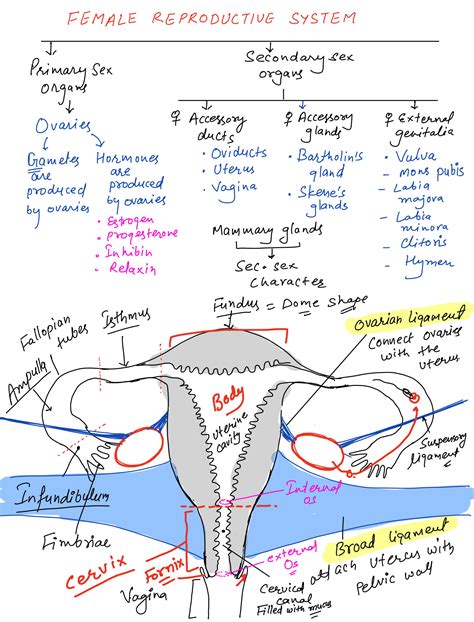 FEMALE REPRODUCTIVE SYSTEM
Primary sex
organs
Secondary sex
organs
Ovaries
Gametes
are
produced
by ovaries
Hormones
are
produced
by ovaries
• Estrogen
• Progesterone
• Inhibin
• Relaxin
♀ Accessory
ducts
• Oviducts
• Uterus
• Vagina
♀ Accessory
glands
• Bartholin's
gland
• Skene's
glands
♀ External
genitalia
• Vulva
- Mons pubis
- Labia
majora
- Labia
minora
- Clitoris
- Hymen
Mammary glands
Sec. sex
character
Fundus = Dome shape
Fallopian
tubes
Isthmus
Ampulla
Ovarian ligament
Connect ovaries
with the
uterus
Body
uterine
cavity
Suspensory
ligament
Infundibulum
Fimbriae
Internal
os
Cervix
Fornix
Vagina
external
os
Cervical
canal
Filled with mucus
Broad ligament
attach uterus with
pelvic wall